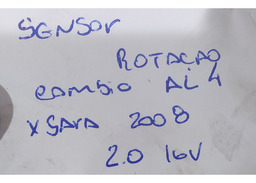 SENSOR
ROTAÇAO
CAMBIO AL4
XSARA 2008
2.0 16V